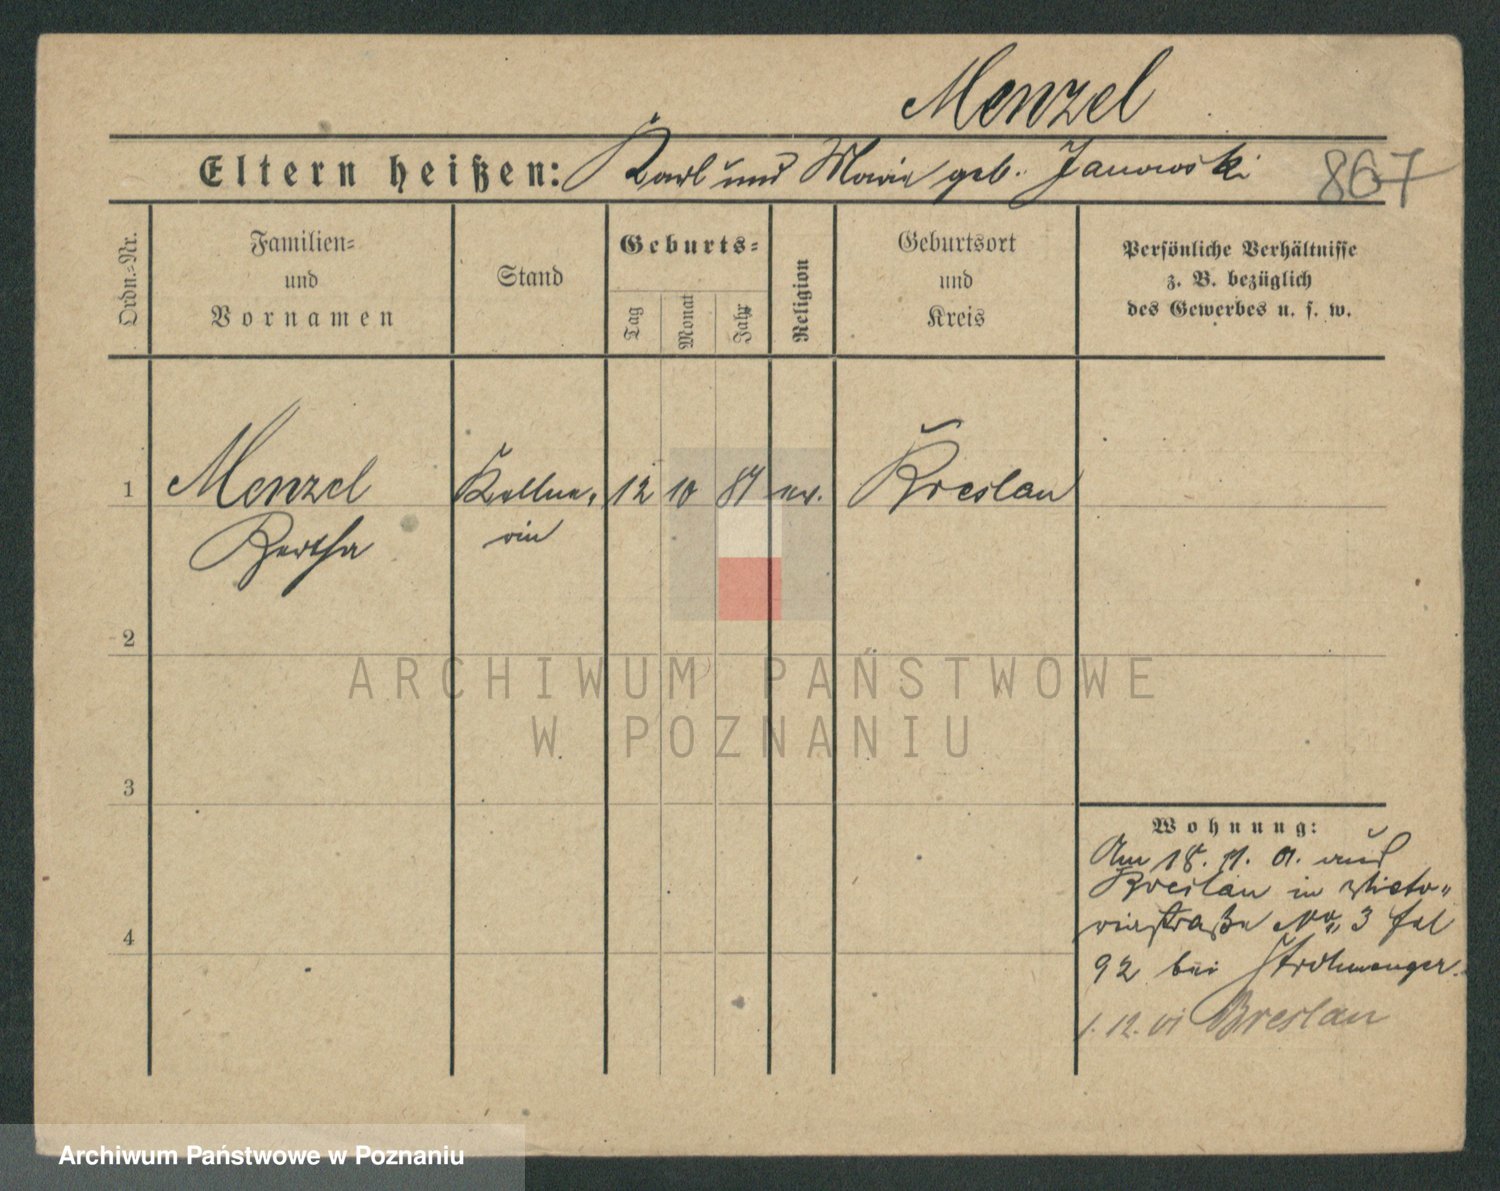 Menzel
Eltern heißen: Karl und Marie geb. Janowski
867
Ordn.=Nr.
Familien=
und
Vornamen
Stand
Geburts=
Tag
Monat
Jahr
Religion
Geburtsort
und
Kreis
Persönliche Verhältnisse
z. B. bezüglich
des Gewerbes u. s. w.
1 Menzel Kellne= 12 10 87 ev. Breslau
Bertha rin
2
ARCHIWUM PAŃSTWOWE
W POZNANIU
3
Wohnung:
Am 18. 11. 01. aus
Breslau in Victo=
riastraße No. 3
4
92 bei Strohmenger.
1. 12. 01 Breslau
Archiwum Państwowe w Poznaniu